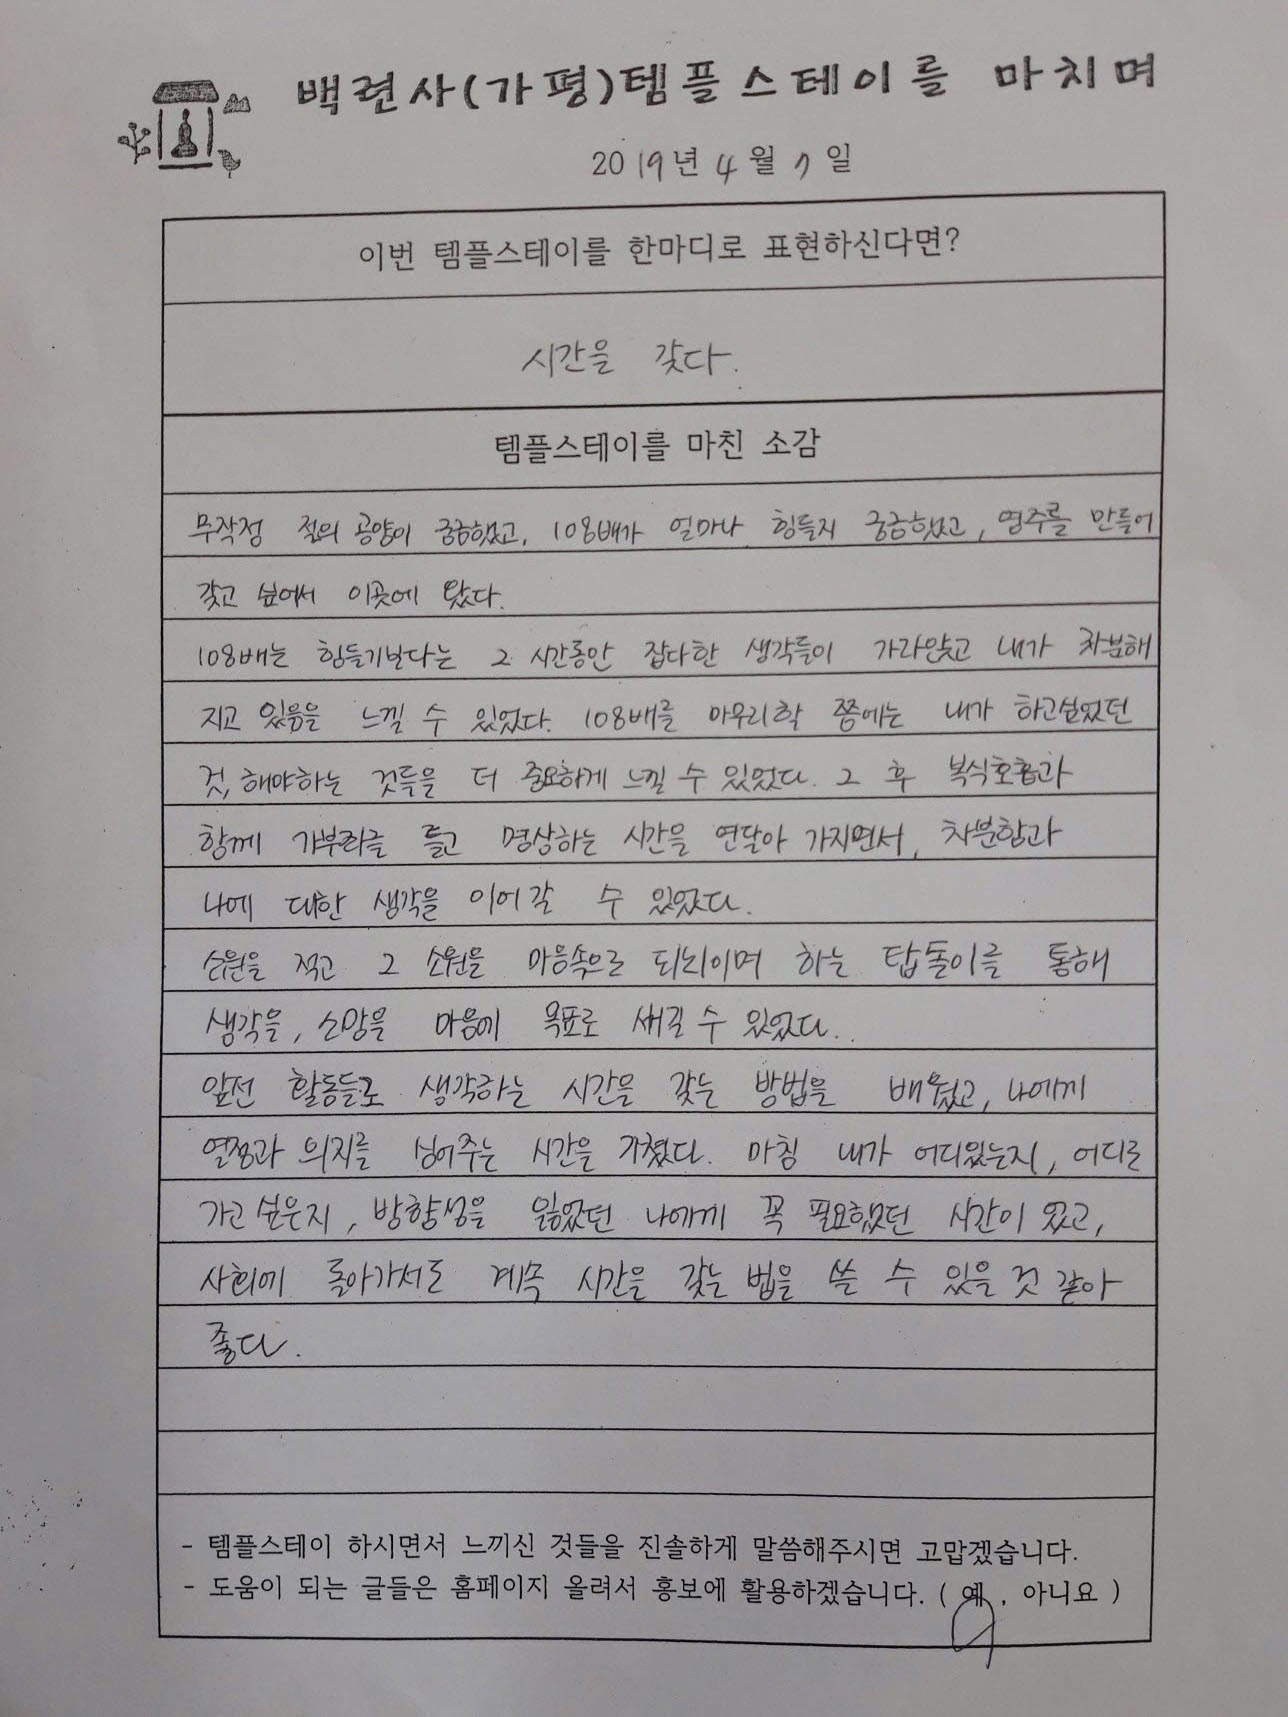 백련사(가평)템플스테이를 마치며
2019년 4월 7일
이번 템플스테이를 한마디로 표현하신다면?
시간을 갖다.
템플스테이를 마친 소감
무작정 절의 공양이 궁금했고, 108배가 얼마나 힘들지 궁금했고, 염주를 만들어
갖고 싶어서 이곳에 왔다.
108배는 힘들기보다는 그 시간동안 잡다한 생각들이 가라앉고 내가 차분해
지고 있음을 느낄 수 있었다. 108배를 마무리할 쯤에는 내가 하고싶었던
것, 해야하는 것들을 더 중요하게 느낄 수 있었다. 그 후 복식호흡과
함께 가부좌를 틀고 명상하는 시간을 연달아 가지면서, 차분함과
나에 대한 생각을 이어갈 수 있었다.
소원을 적고 그 소원을 마음속으로 되뇌이며 하는 탑돌이를 통해
생각을, 소망을 마음에 목표로 새길 수 있었다.
앞전 활동들로 생각하는 시간을 갖는 방법을 배웠고, 나에게
열정과 의지를 심어주는 시간을 가졌다. 마침 내가 어디있는지, 어디로
가고 싶은지, 방향성을 잃었던 나에게 꼭 필요했던 시간이 였고,
사회에 돌아가서도 계속 시간을 갖는 법을 쓸 수 있을 것 같아
좋다.
- 템플스테이 하시면서 느끼신 것들을 진솔하게 말씀해주시면 고맙겠습니다.
- 도움이 되는 글들은 홈페이지 올려서 홍보에 활용하겠습니다. ( 예 , 아니요 )